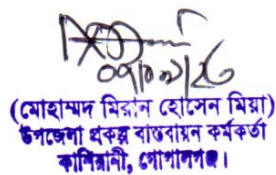 ০৭/০১/২৬
(মোহাম্মদ মিরান হোসেন মিয়া)
উপজেলা প্রকল্প বাস্তবায়ন কর্মকর্তা
কাশিয়ানী, গোপালগঞ্জ।